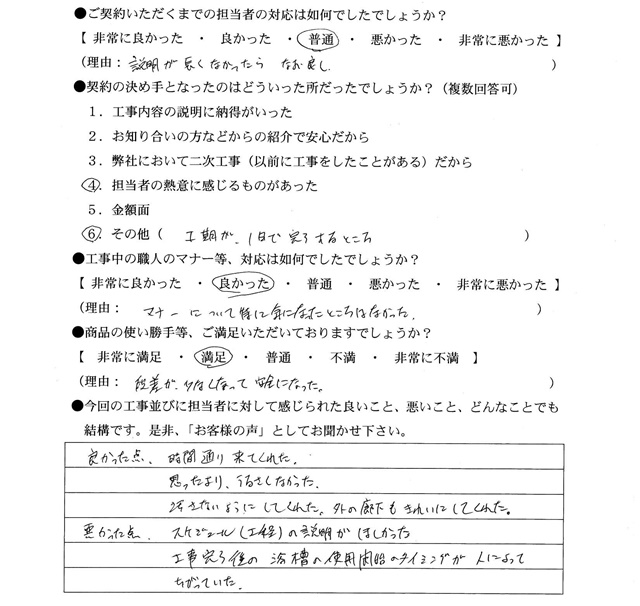 ●ご契約いただくまでの担当者の対応は如何でしたでしょうか？
【 非常に良かった ・ 良かった ・ 普通 ・ 悪かった ・ 非常に悪かった 】
(理由： 説明が長くなかったら なお良し。 )
●契約の決め手となったのはどういった所だったでしょうか？（複数回答可）
１．工事内容の説明に納得がいった
２．お知り合いの方などからの紹介で安心だから
３．弊社において二次工事（以前に工事をしたことがある）だから
④．担当者の熱意に感じるものがあった
５．金額面
⑥．その他（ 工期が、1日で完了するところ ）
●工事中の職人のマナー等、対応は如何でしたでしょうか？
【 非常に良かった ・ 良かった ・ 普通 ・ 悪かった ・ 非常に悪かった 】
(理由： マナーについて特に気になったところはなかった。 )
●商品の使い勝手等、ご満足いただいておりますでしょうか？
【 非常に満足 ・ 満足 ・ 普通 ・ 不満 ・ 非常に不満 】
(理由： 段差が少なくなって安全になった。 )
●今回の工事並びに担当者に対して感じられた良いこと、悪いこと、どんなことでも
結構です。是非、「お客様の声」としてお聞かせ下さい。
良かった点、時間通り来てくれた。
思ったより、うるさくなかった。
汚さないようにしてくれた。外の廊下もきれいにしてくれた。
悪かった点、スケジュール(工程)の説明がほしかった
工事完了後の浴槽の使用開始のタイミングが人によって
ちがっていた。